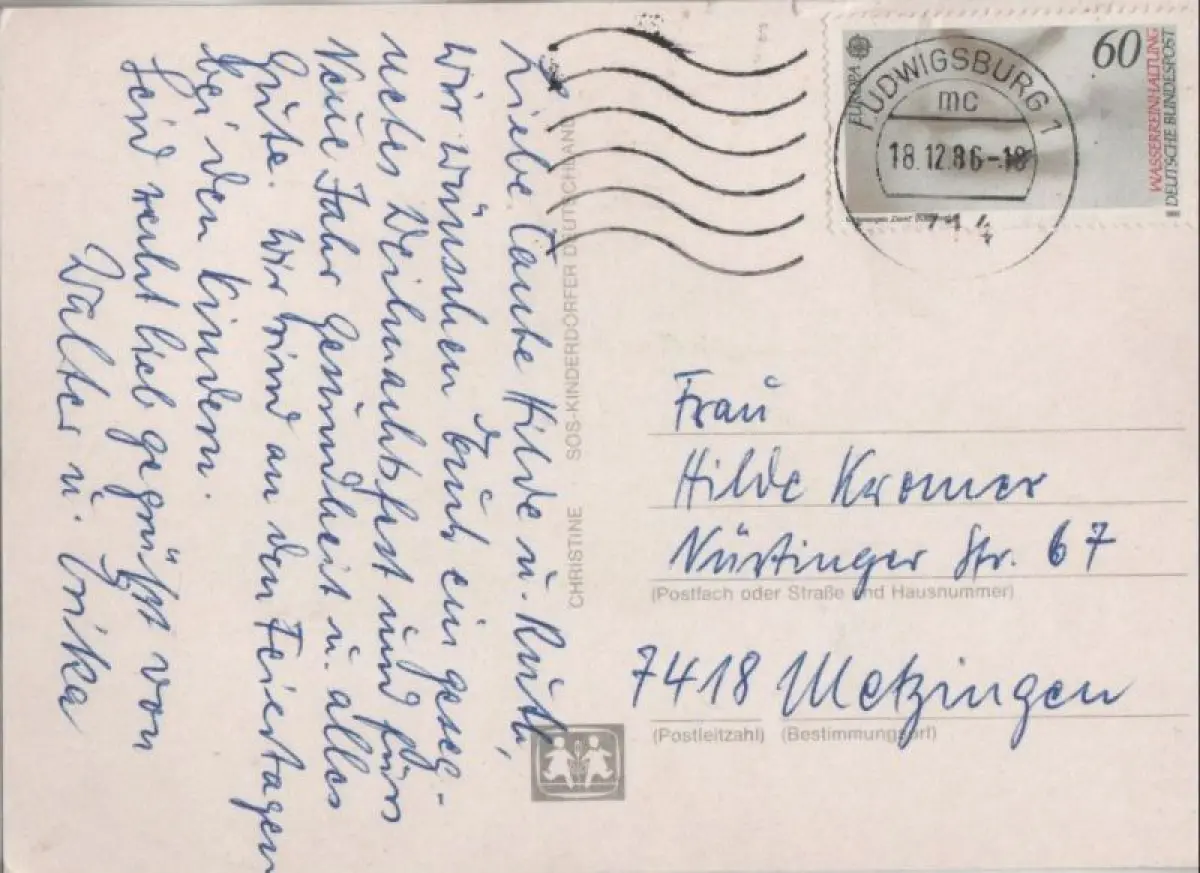 Liebe Tante Hilde u. Ruth,
wir wünschen Euch ein geseg-
netes Weihnachtsfest und fürs
Neue Jahr Gesundheit u. alles
Gute. Wir sind an den Feiertagen
bei den Kindern.
Seid recht lieb gegrüßt von
Walter u. Erika
CHRISTINE · SOS-KINDERDÖRFER DEUTSCHLAND
EUROPA
60
WASSERREINHALTUNG
DEUTSCHE BUNDESPOST
LUDWIGSBURG 1
mc
18.12.86-18
714
Frau
Hilde Kromer
Nürtinger Str. 67
(Postfach oder Straße und Hausnummer)
7418 Metzingen
(Postleitzahl) (Bestimmungsort)